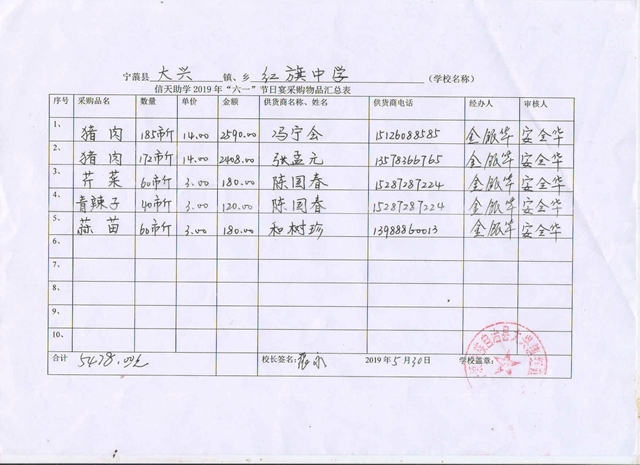 宁蒗县 大兴 镇、乡 红旗中学 （学校名称）
信天助学 2019 年“六一”节日宴采购物品汇总表
序号 采购品名 数量 单价 金额 供货商名称、姓名 供货商电话 经办人 审核人
1、 猪肉 185市斤 14.00 2590.00 冯宁会 15126088585 金银华 安全华
2、 猪肉 172市斤 14.00 2408.00 张孟元 13578366765 金银华 安全华
3、 芹菜 60市斤 3.00 180.00 陈国春 15287287224 金银华 安全华
4、 青辣子 40市斤 3.00 120.00 陈国春 15287287224 金银华 安全华
5、 蒜苗 60市斤 3.00 180.00 和树珍 13988860013 金银华 安全华
6、
7、
8、
9、
10、
合计 5478.00元 校长签名： 2019 年 5 月 30 日 学校盖章：